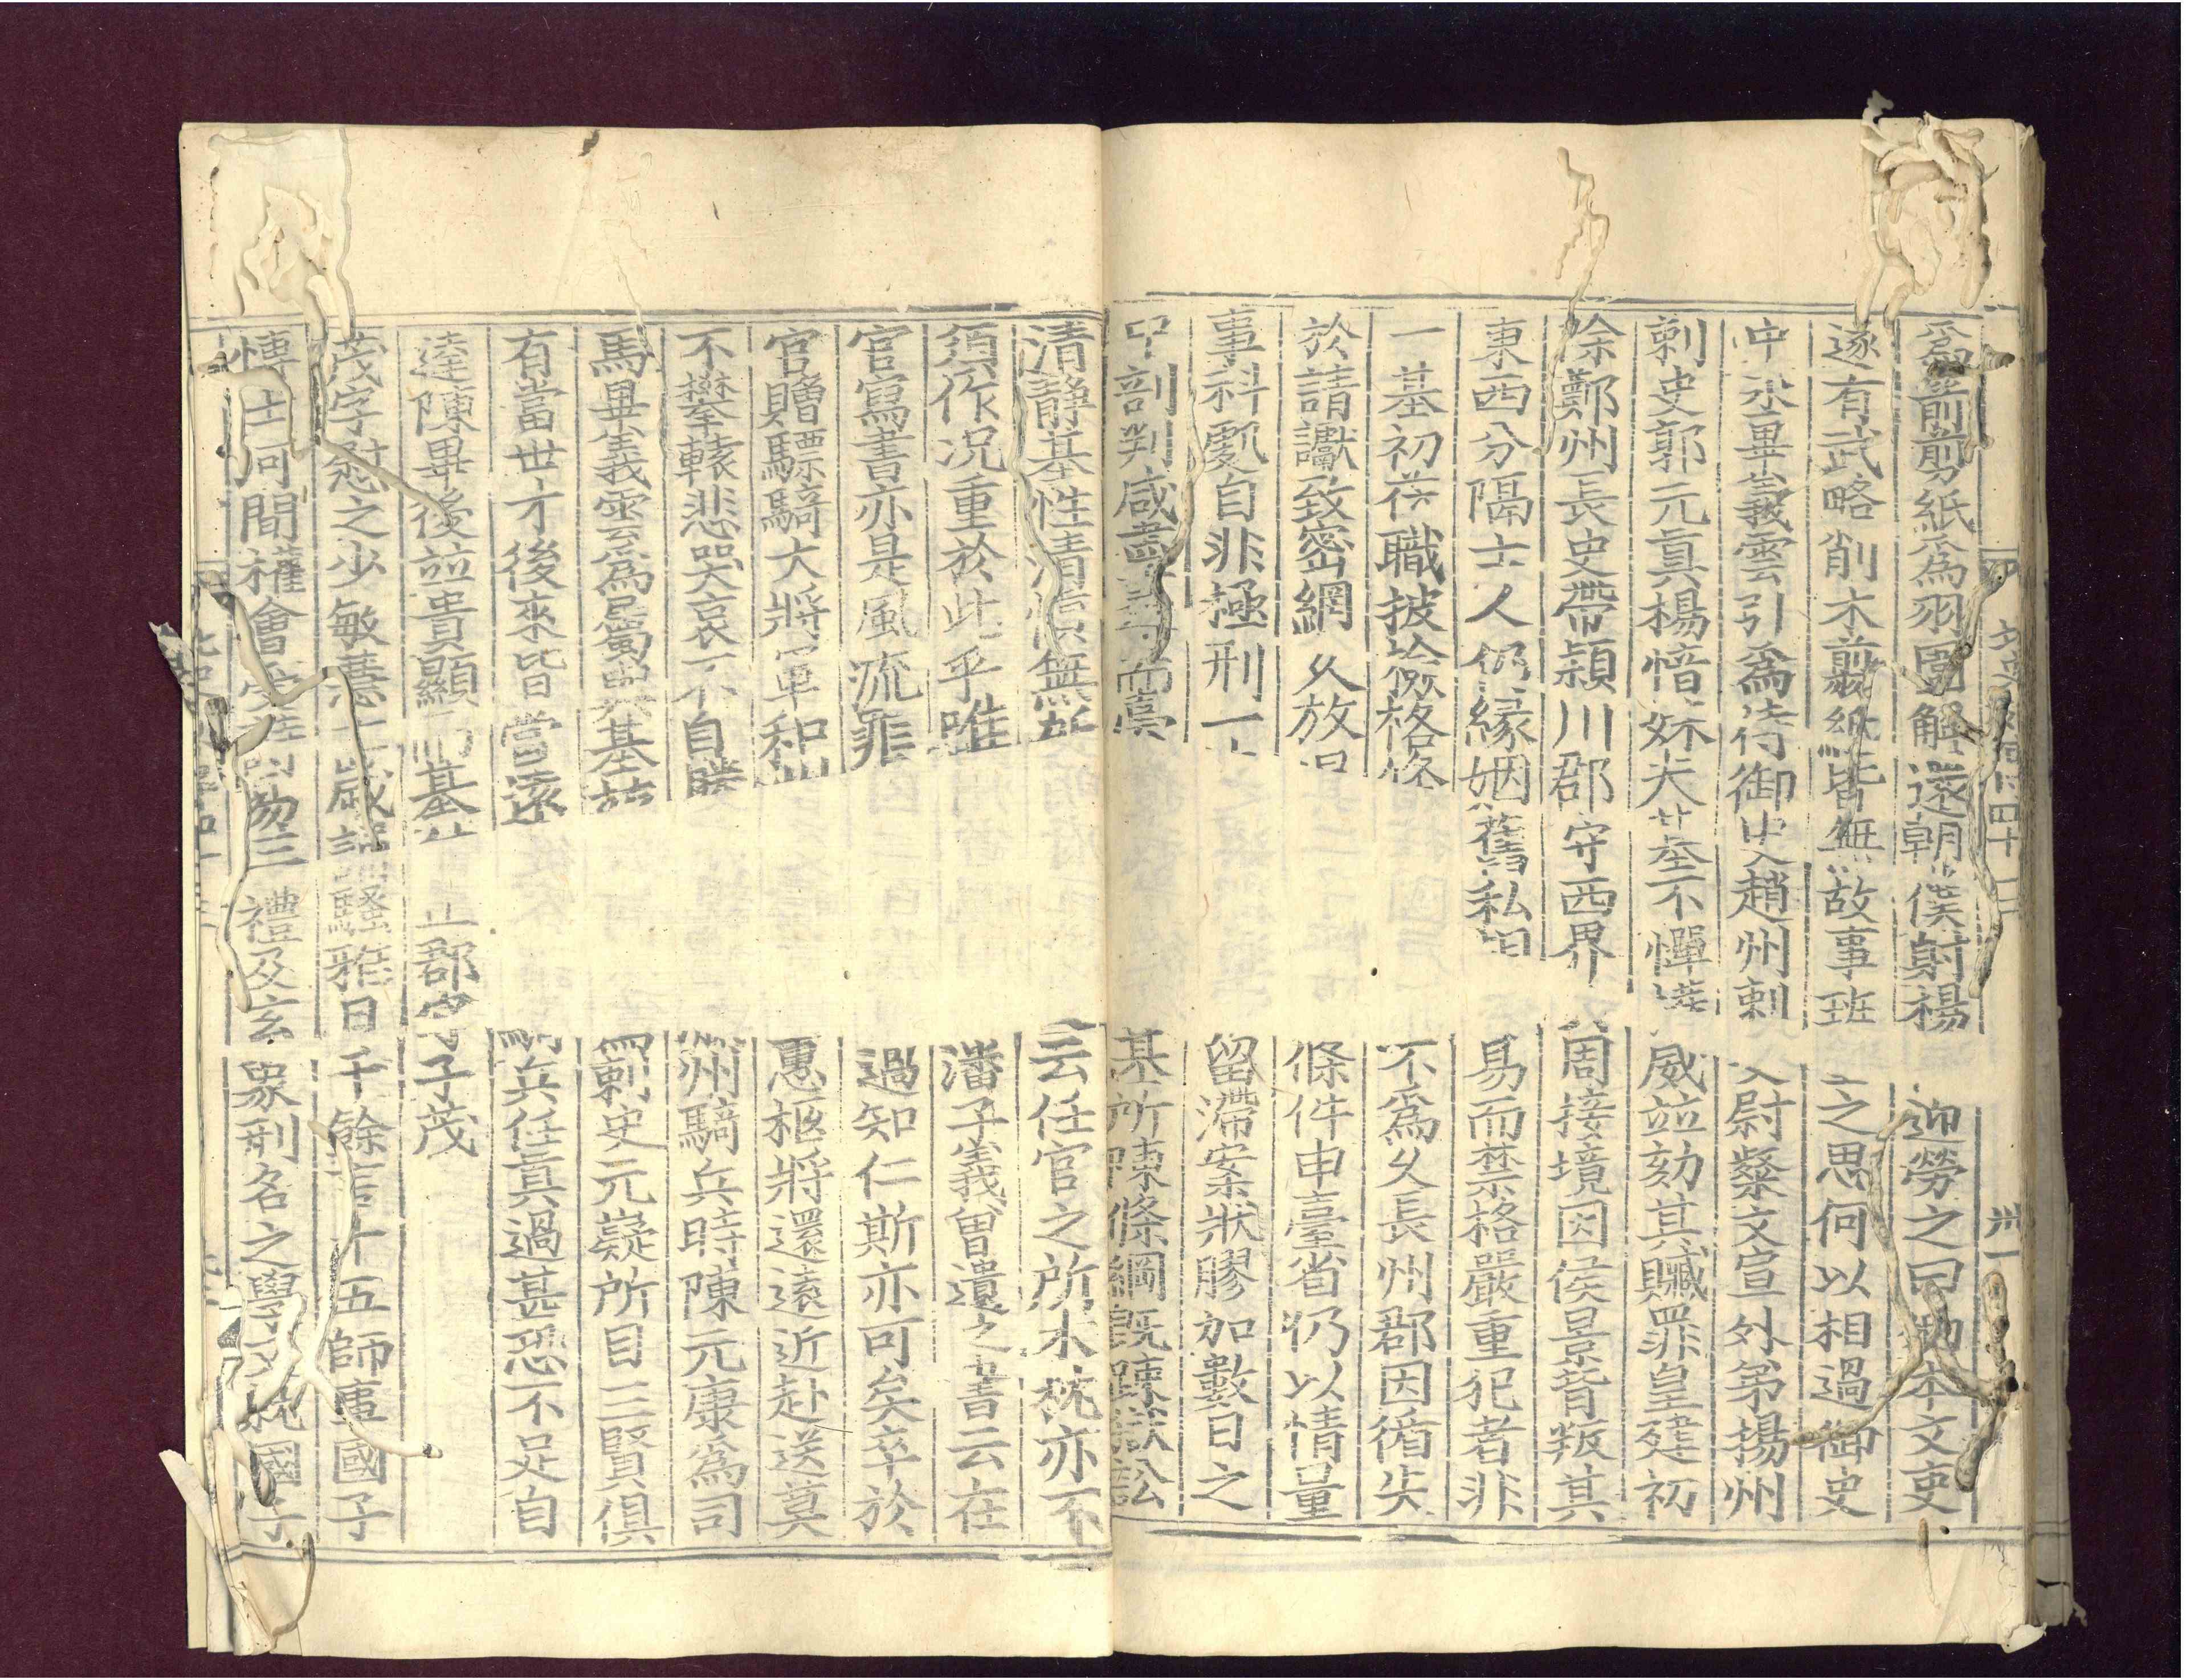 爲箭剪紙爲羽圍解還朝僕射楊 迎勞之曰 本文吏
遂有武略削木剪紙皆無故事班 之思何以相過御史
中丞畢義雲引爲侍御史趙州刺 尉粲文宣外弟揚州
刺史郭元眞楊愔妹夫基不憚 威並劾其贓罪皇建初
除鄭州長史帶潁川郡守西界 周接境因侯景背叛其
東西分隔士人仍緣姻舊私 易而禁格嚴重犯者非
一基初莅職披檢格 不爲久長州郡因循失
於請讞致密網久放 條件申臺省仍以情量
事科處自非極刑一 留滯案狀膠加數日之
中剖判咸盡 而 基所陳條綱既疎獄訟
清靜基性清愼無所 云任官之所木枕亦不
須作况重於此乎唯 潘子義曾遺之書云在
官寫書亦是風流罪 過知仁斯亦可矣卒於
官贈驃騎大將軍和州 惠柩將還遠近赴送莫
不攀轅悲哭哀不自勝 州騎兵時陳元康爲司
馬畢義雲爲屬與基 刺史元嶷所目三賢俱
有當世才後來皆當遠 騎兵任眞過甚恐不足自
達陳畢後並貴顯而基 郡守子茂
茂字慰之少敏慧七歲誦 騷雅日千餘言十五師事國子
博士河間權會受 三禮及玄象刑名之學又就國子